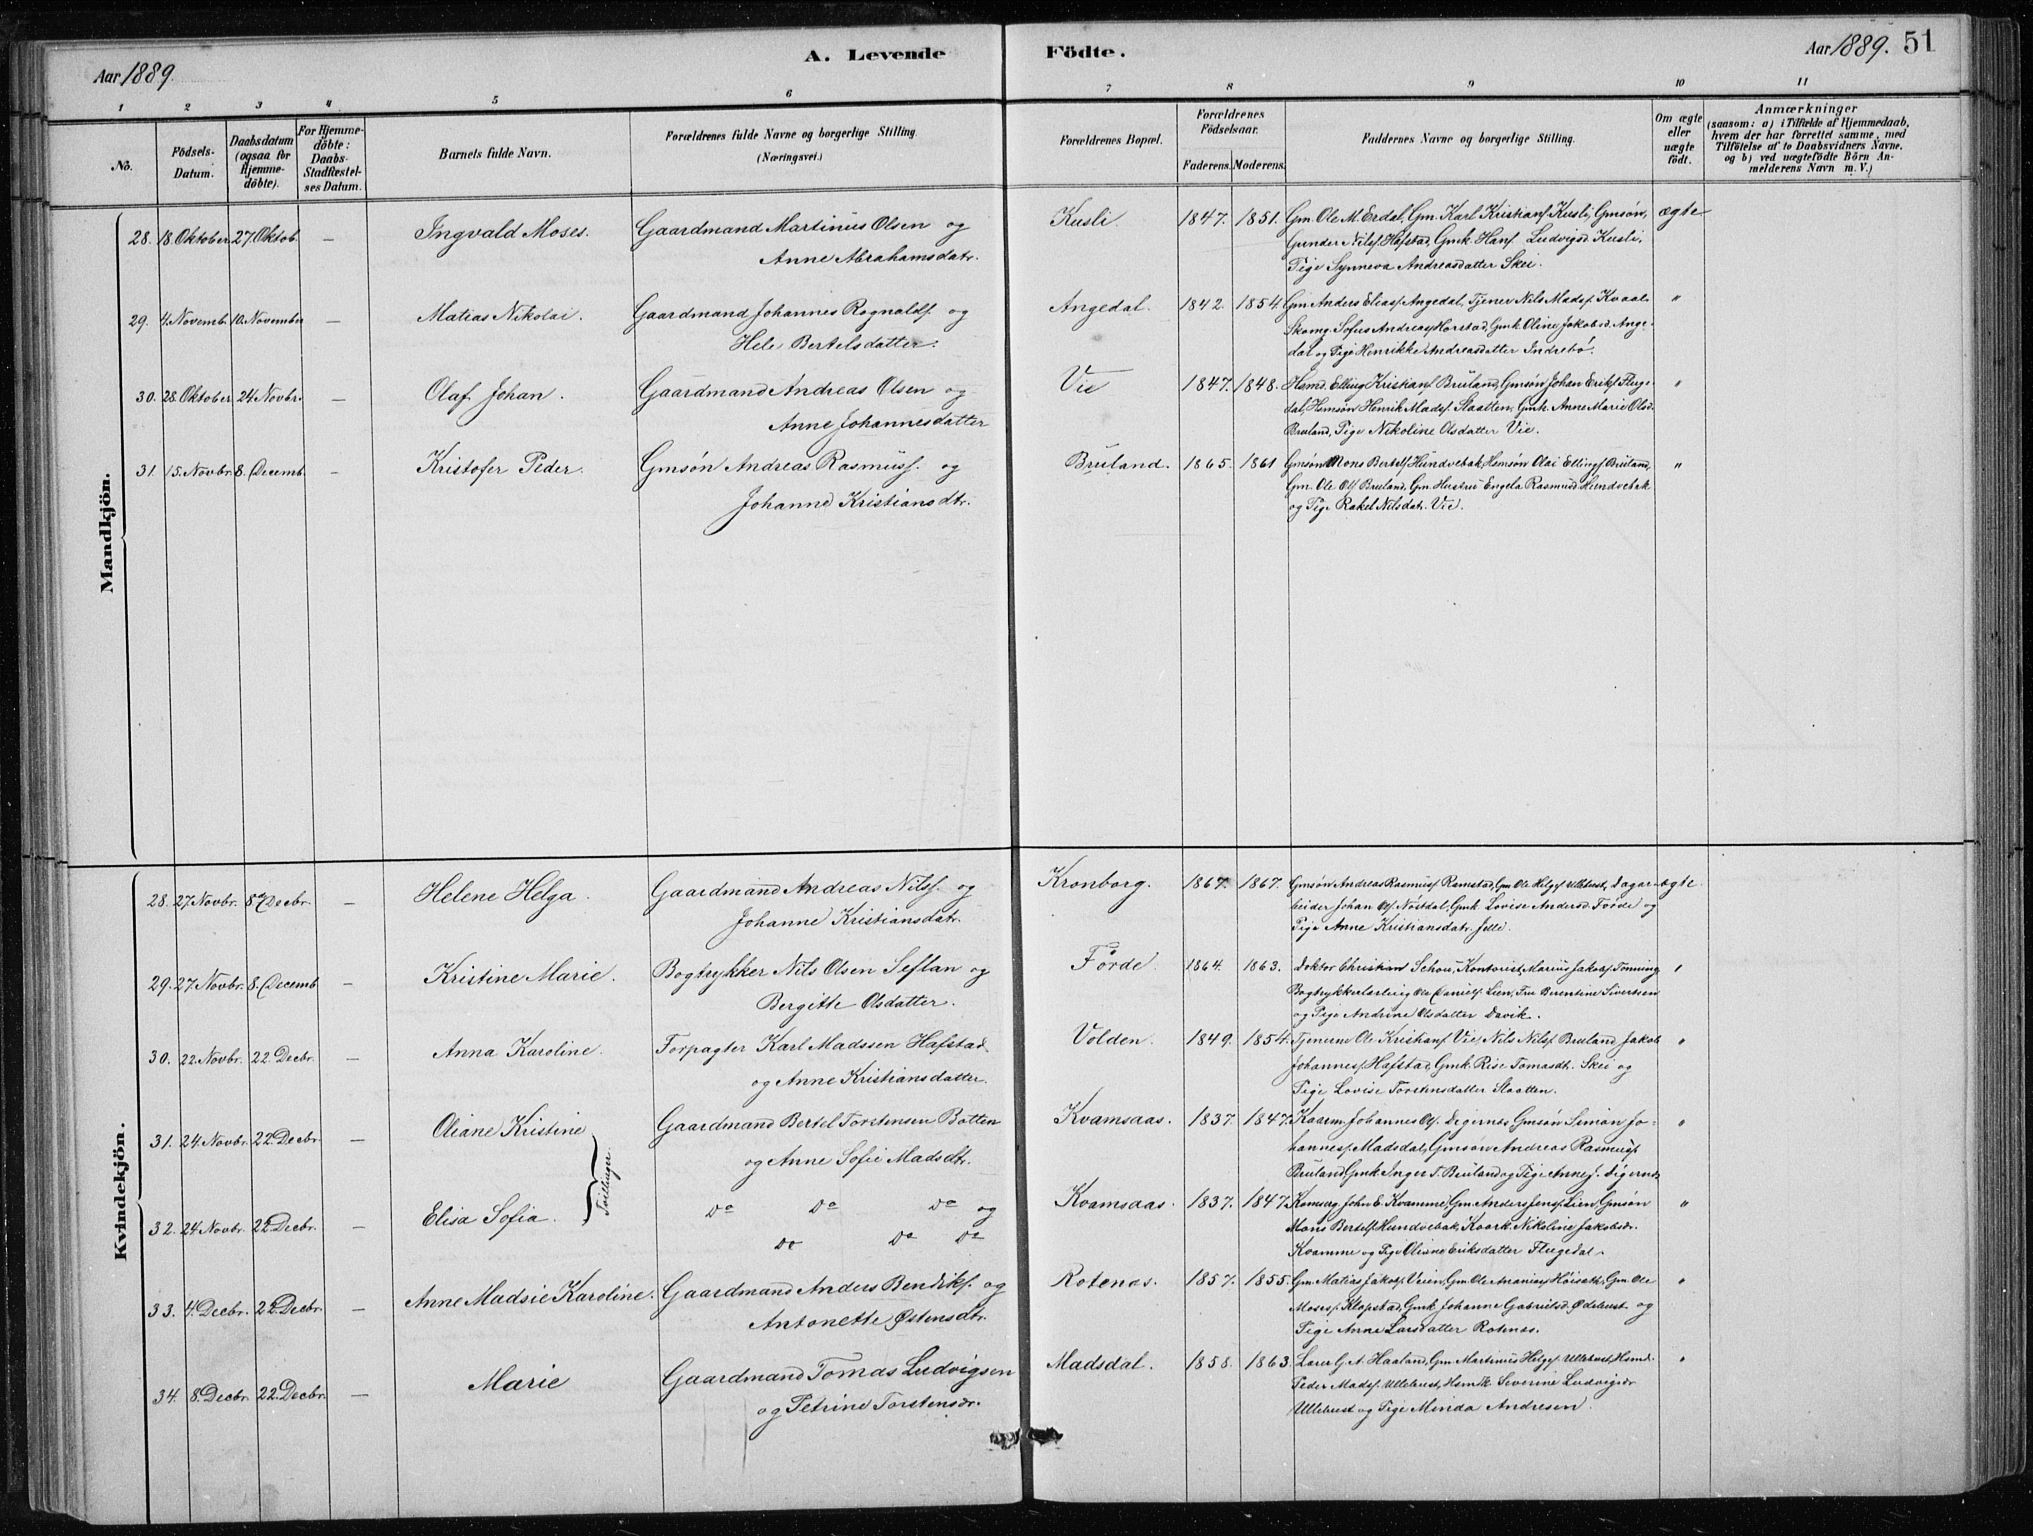 Aar 1889.
A. Levende
Födte.
Aar 1889. 51
1 2 3 4 5 6 7 8 9 10 11
No.
Födsels-
Datum.
Daabsdatum
(ogsaa for
Hjemme-
döbte).
For Hjemme-
döbte:
Daabs-
Stadfæstel-
ses Datum.
Barnets fulde Navn.
Forældrenes fulde Navne og borgerlige Stilling.
(Næringsvei.)
Forældrenes Bopæl.
Forældrenes
Födselsaar.
Faderens. Moderens.
Faddernes Navne og borgerlige Stilling.
Om ægte
eller
uægte
födt.
Anmærkninger
(saasom: a) i Tilfælde af Hjemmedaab,
hvem der har forrettet samme, med
Tilföielse af to Daabsvidners Navne,
og b) ved uægtefödte Börn An-
melderens Navn m. V.)
Mandkjön.
28. 18. Oktober 27. Oktob. — Ingvald Moses. Gaardmand Martinus Olsen og Kusli. 1847. 1851. Gm. Ole M. Erdal, Gm. Karl Kristians. Kusli, Gmsøn, ægte
Anne Abrahamsdatr. Gunder Nils. Hafstad, Gmk. Hans Ludvigsd. Kusli,
Pige Synneva Andreasdatter Skei.
29. 4. Novemb. 10. November — Matias Nikolai. Gaardmand Johannes Rognalds. og Angedal. 1842. 1854. Gm. Anders Elias. Angedal, Tjener Nils Mads. Kvaal "
Hele Bertelsdatter. Skomg. Sofus Andreas. Horstad, Gmk. Oline Jakobsd. Ange-
dal og Pige Henrikke Andreasdatter Indrebö.
30. 28. Oktober 24. Novbr. — Olaf Johan. Gaardmand Andreas Olsen og Vie 1847. 1848. Hsmd. Elling Kristians. Bruland, Gmsøn Johan Eriks. Fluge- "
Anne Johannesdatter dal, Hsmsøn Henrik Mads. Slaatten, Gmk. Anne Marie Olsd.
Bruland, Pige Nikoline Olsdatter Vie.
31. 15. Novbr. 8. Decemb. — Kristofer Peder. Gmsøn Andreas Rasmuss. og Bruland. 1865. 1861 Gmsøn Mons Bertels. Hundvebak, Hsmsøn Olai Ellings. Bruland, "
Johanne Kristiansdtr. Gm. Ole Ols. Bruland, Gm. Hustru Engela Rasmusd. Hundvebak
og Pige Rakel Nilsdatr. Vie.
Kvindekjön.
28. 27. Novbr. 8de Decbr. — Helene Helga. Gaardmand Andreas Nils. og Kronborg. 1867. 1867. Gmsøn Andreas Rasmus. Ramstad, Gm. Ole Helges. Ullebust, Dagar- ægte
Johanne Kristiansdatr. beider Johan Ols. Nöstdal, Gmk. Lovise Andersd. Förde og
Pige Anne Kristiansdatr.
29. 27. Novbr. 8. Decemb — Kristine Marie. Bogtrykker Nils Olsen Seflan og Förde 1864. 1863. Doktor Christian Schou, Kontorist Marius Jakobs. Tonning "
Bergitte Olsdatter. Bogtrykkerlærling Ole Daniels. Lien, Fru Berentine Sivertsen
og Pige Andrine Olsdatter Davik.
30. 22. Novbr. 22 Decbr. — Anna Karoline. Forpagter Karl Madssen Hafstad Volden. 1849. 1854. Tjenerne Ole Kristians. Vie, Nils Nils. Bruland, Jakob "
og Anne Kristiansdatter. Johannes. Hafstad, Gmk. Rise Tomasdt. Skei og
Pige Lovise Torstensdatter Slaatten.
31. 24. Novbr. 22. Decbr. — Oliane Kristine Gaardmand Bertel Torstensen Botten Kvamsaas. 1837. 1847. Kaarm. Johannes Ols. Degernes, Gmsøn Simon Jo- "
og Anne Sofie Madsdtr. hannes. Madsdal, Gmsøn Andreas Rasmuss.
Bruland, Gmk. Inger T. Bruland og Pige Anne J. Digernes
Tvillinger.
32. 24. Novbr. 22. Decbr. — Elisa Sofia. Do Do Do og Kvamsaas. 1837. 1847. John E. Kvamme, Gm. Anders Jens. Lien, Gmsøn "
Do Do Do Mons Bertels. Hundvebak, Kaark. Nikoline Jakobsdr.
Kvamme og Pige Oliane Eriksdatter Flugedal.
33. 4. Decbr. 22. Decbr. — Anne Madsie Karoline. Gaardmand Anders Bendiks. og Rotenæs. 1857. 1855. Gm. Matias Jakobs. Veien, Gm. Ole Ananias. Höisæth, Gm. Ole "
Antonette Østensdtr. Moses. Klopstad, Gmk. Johanne Gabrielsd. Ødebust og
Pige Anne Larsdatter Rotenæs.
34. 8. Decbr. 22. Decbr. — Marie Gaardmand Tomas Ludvigsen Madsdal. 1858. 1863. Lærer G. A. Haaland, Gm. Martinus Helges. Ullebust, Hsmd. "
og Petrine Torstensdr. Peder Mads. Ullebust, Hsmdk. Severine Ludvigsdr.
Ullebust og Pige Minda Andresen.